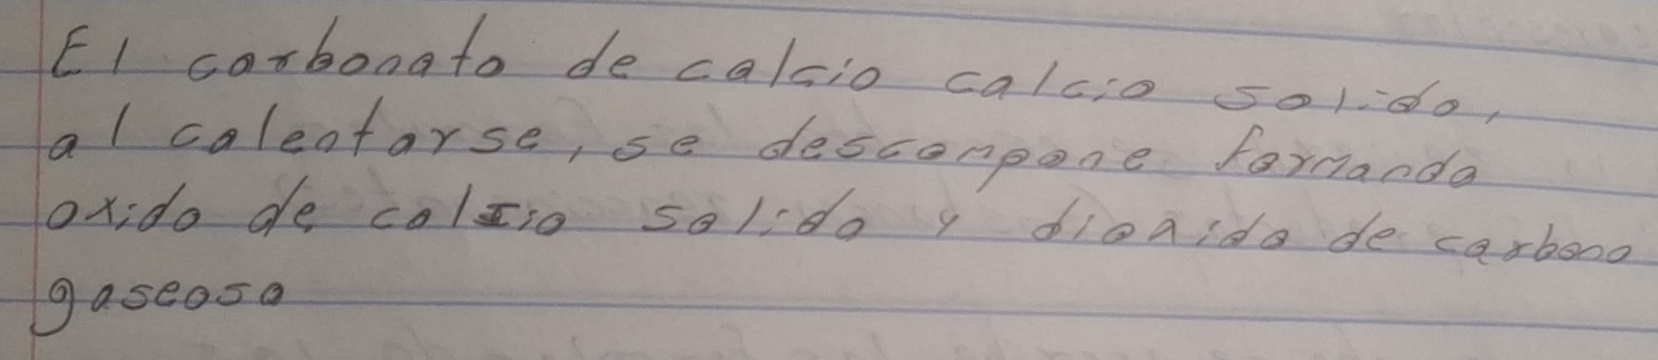 El carbonato de calcio calcio solido,
al calentarse, se descompone formando
oxido de calcio solido y dioxido de carbono
gaseoso